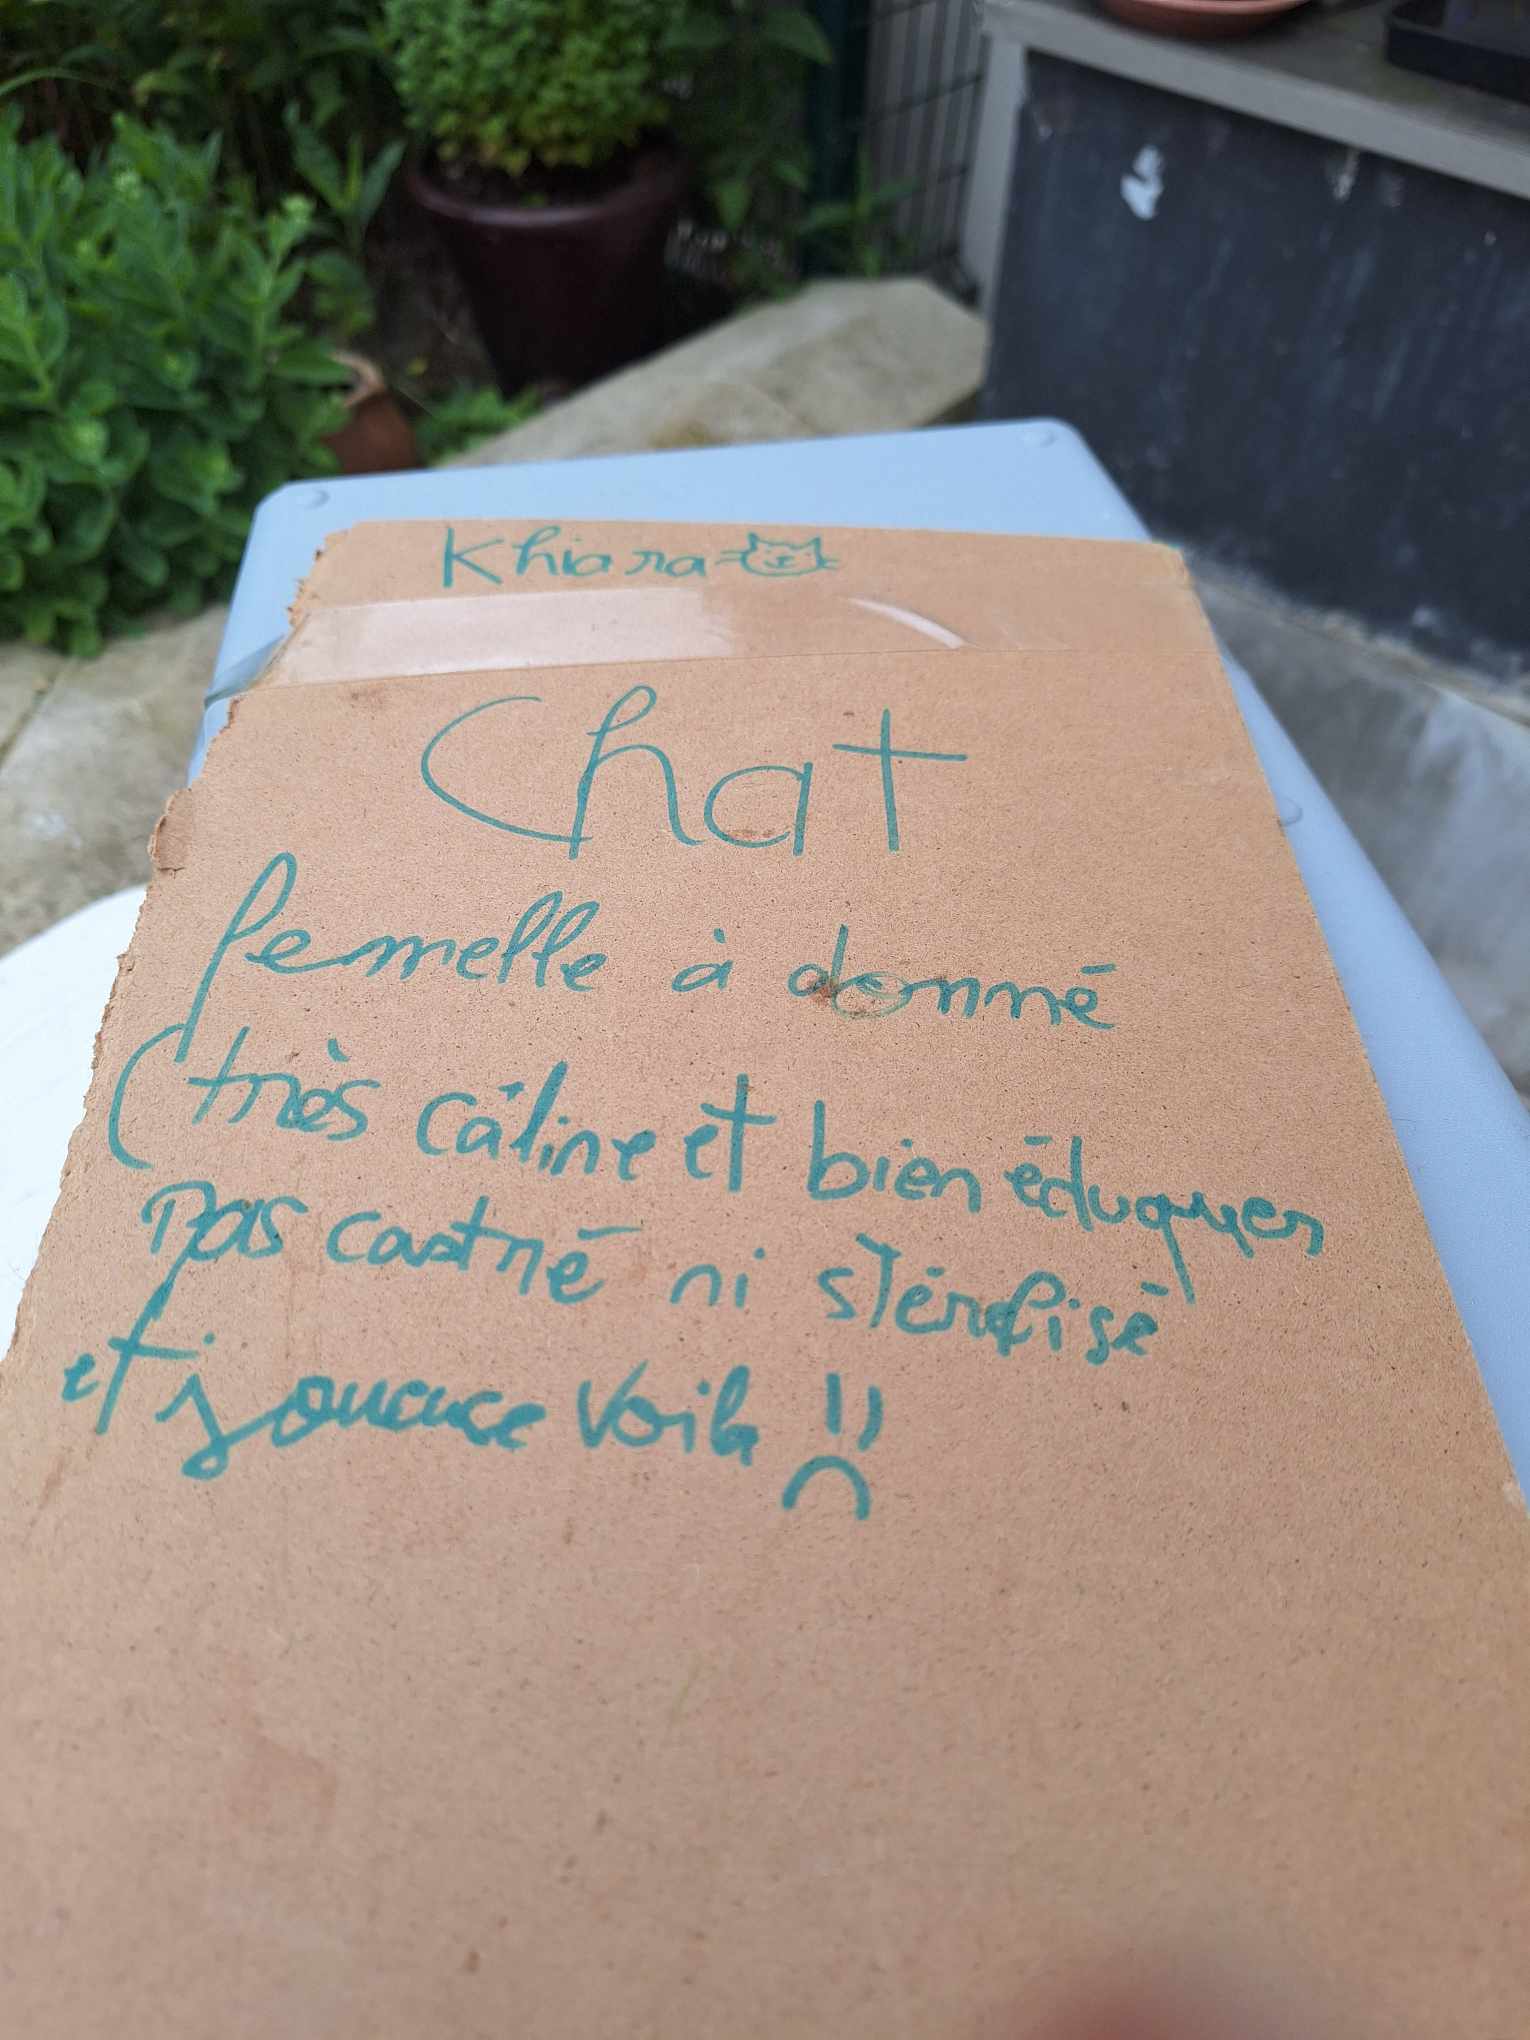 Khiara
Chat
femelle à donné
(très câline et bien éduquer
Pas castré ni stérilisé
et joueuse voila !!